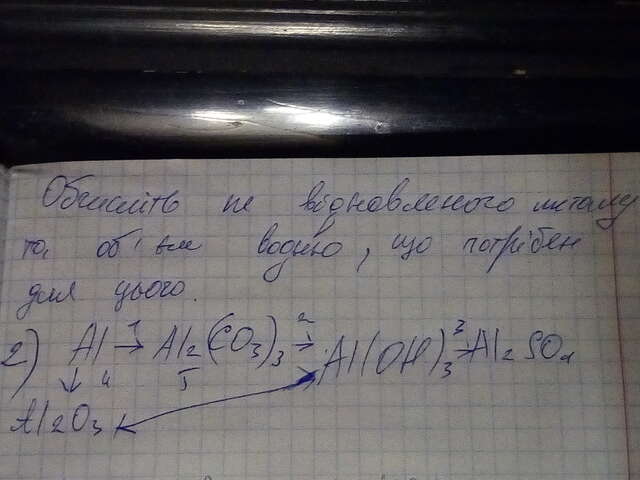 Обчисліть m відновленого металу
та об'єм водню, що потрібен
для цього.
2) Al 1→ Al2(CO3)3 2→ Al(OH)3 3→ Al2SO4
↓ 4 5
Al2O3